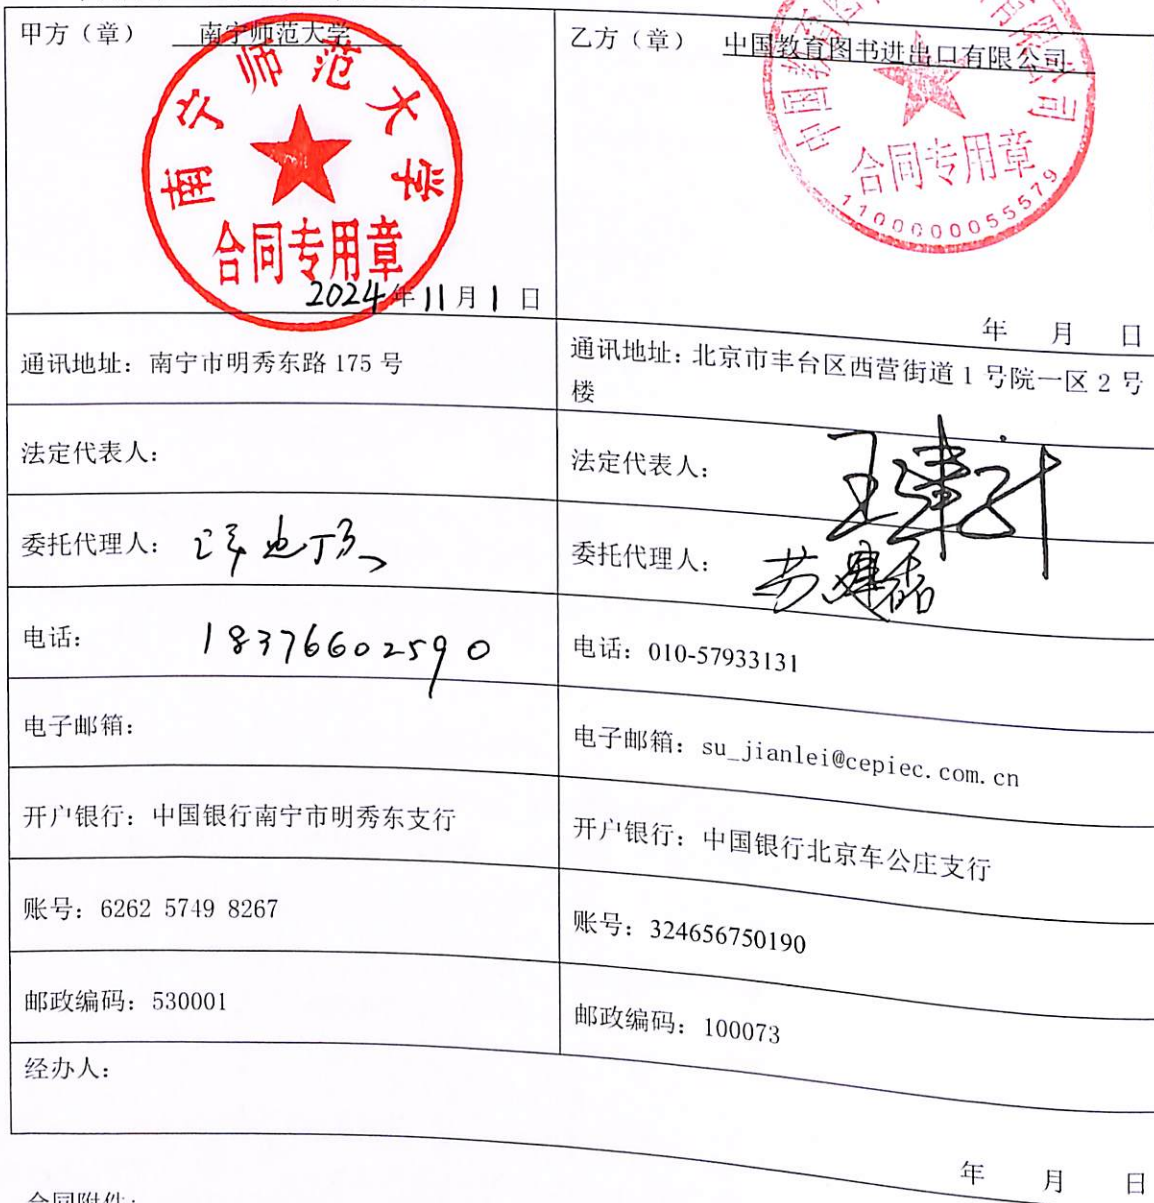 甲方（章） 南宁师范大学
南宁师范大学
合同专用章
2024年11月1日
乙方（章） 中国教育图书进出口有限公司
合同专用章
1100000055579
年 月 日
通讯地址：南宁市明秀东路 175 号
通讯地址：北京市丰台区西营街道 1 号院一区 2 号
楼
法定代表人：
法定代表人：
委托代理人：
委托代理人：苏建磊
电话：18376602590
电话：010-57933131
电子邮箱：
电子邮箱：su_jianlei@cepiec.com.cn
开户银行：中国银行南宁市明秀东支行
开户银行：中国银行北京车公庄支行
账号：6262 5749 8267
账号：324656750190
邮政编码：530001
邮政编码：100073
经办人：
年 月 日
合同附件：